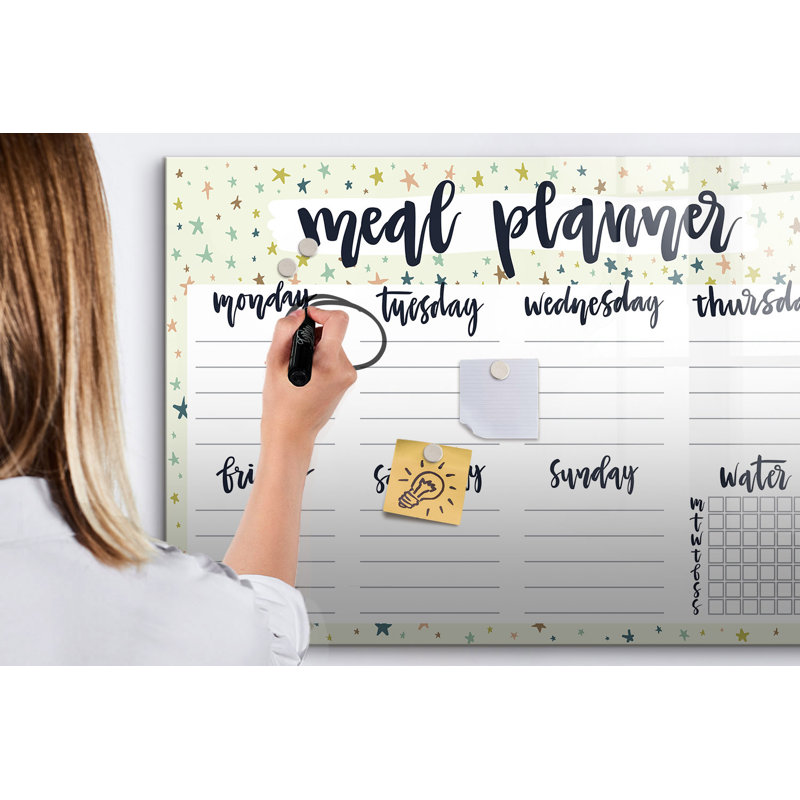 meal planner
monday tuesday wednesday thursda
fri s y sunday water
m
t
w
t
f
s
s